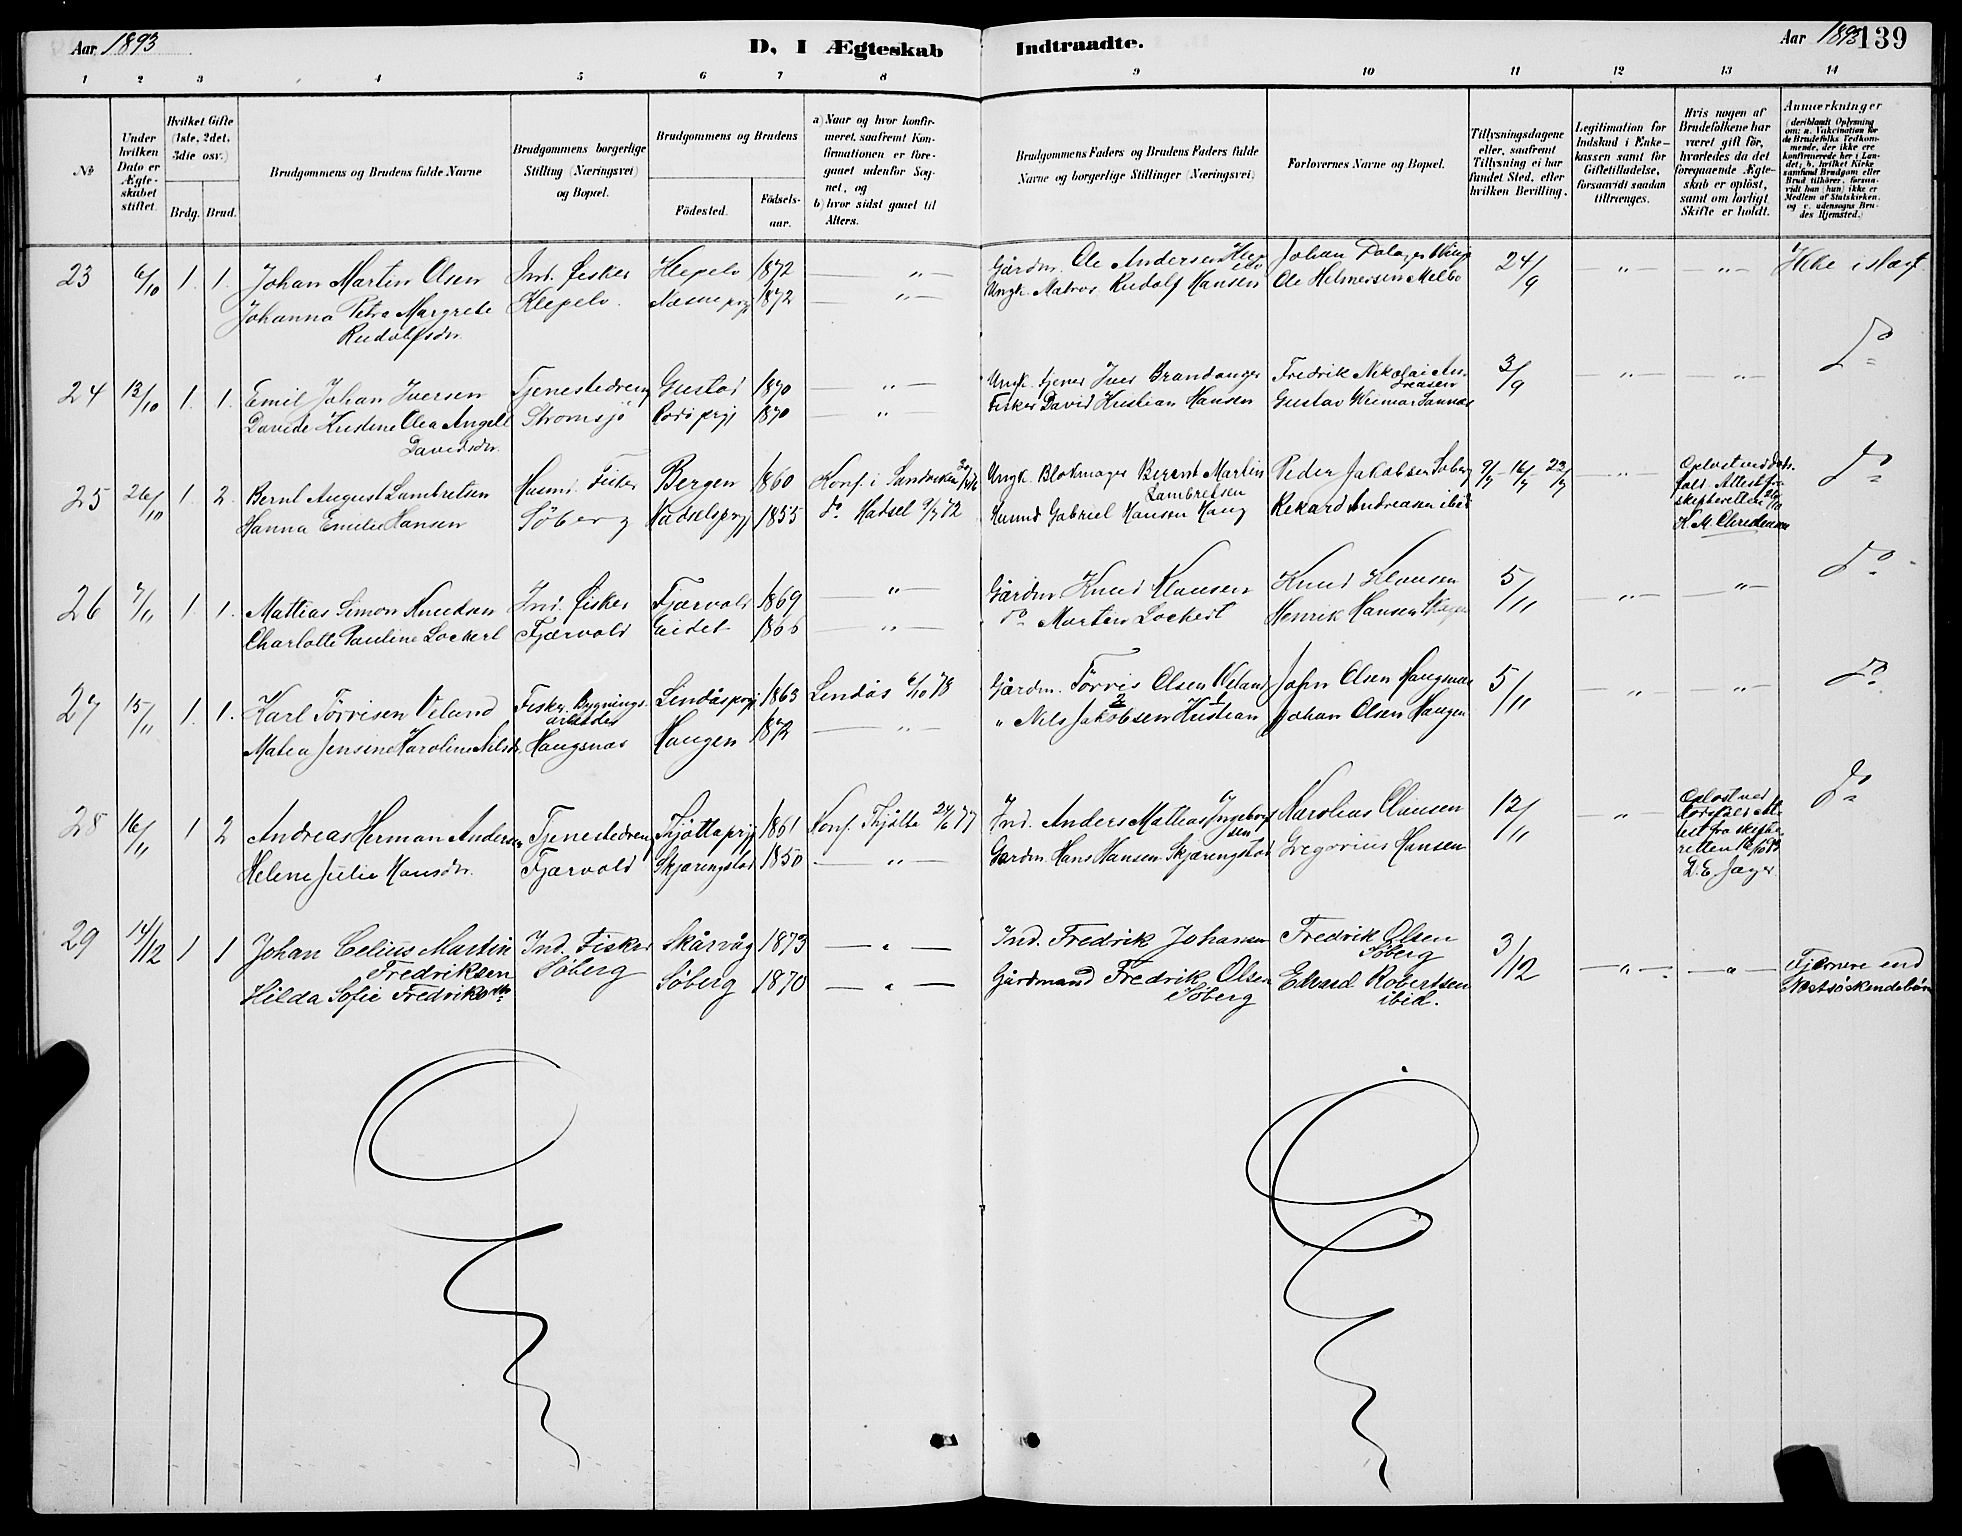 Aar 1893
D, I Ægteskab Indtraadte.
Aar 1893 139
1 2 3 4 5 6 7 8 9 10 11 12 13 14
No
Under hvilken Dato er Ægteskabet stiftet.
Hvilket Gifte (1ste, 2det, 3die osv.)
Brdg. Brud.
Brudgommens og Brudens fulde Navne
Brudgommens borgerlige Stilling (Næringsvei) og Bopæl.
Brudgommens og Brudens
Födested. Födsels-aar.
a) Naar og hvor konfirmeret, saafremt Konfirmationen er foregaaet udenfor Sognet, og
b) hvor sidst gaaet til Alters.
Brudgommens Faders og Brudens Faders fulde Navne og borgerlige Stillinger (Næringsvei)
Forlovernes Navne og Bopæl.
Tillysningsdagene eller, saafremt Tillysning ei har fundet Sted, efter hvilken Bevilling.
Legitimation for Indskud i Enkekassen samt for Giftetilladelse, forsaavidt saadan tiltrænges.
Hvis nogen af Brudefolkene har været gift før, hvorledes da det foregaaende Ægteskab er oplöst, samt om lovligt Skifte er holdt.
Anmærkninger (deriblandt Oplysning om: a. Vakcination for de Brudefolks Vedkommende, der ikke ere konfirmerede her i Landet; b. hvilket Kirkesamfund Brudgom eller Brud tilhörer, forsaavidt han (hun) ikke er Medlem af Statskirken, og c. udensogns Brudes Hjemsted.)
23 6/10 1. 1. Johan Martin Olsen Ind. Fisker Klepelv 1872 — " — Gårdm. Ole Andersen Johan 24/9 — " — " — Ikke i slægt
Johanna Petra Margrete Klepelv. Næsne prgj 1872 — " — Ungk. Matros Rudolf Hansen Ole Helmersen Melbo
Rudolfsdr.
24 12/10 1. 1. Emil Johan Iversen Tjenestedreng Gustad 1870 — " — Ungk. tjener Iver Brandanger Fredrik Nikolai Andreasen 3/9 — " — " — Do
Davide Kristine Olea Angell Stromsjö prgj 1870 — " Fisker David Kristian Hansen Gustav
Davidsdr.
25 26/10 1. 2. Bernt August Lambretsen Husmd. Fisker Bergen 1860 Konf. i Ungk. Blokmager Berent Martin Lambretsen Peder Jakobsen Soberg 9/7 - 16/7 23/7 — " — Do
Hanna Emilie Hansen Söberg Hadsels prgj 1855 do Hadsel 9/7 72 Husmd Gabriel Hansen Haug Rikard Andreasen ibid
K. M. Christensen
26 7/11 1. 1. Mattias Simon Knudsen Ind. Fisker Fjærvold 1869 — " — Gårdm Knud Klausen Knud Klausen 5/11 — " — " — Do
Charlotte Pauline Lockert Fjærvold Eidet 1866 — " — do Morten Lockert Henrik Hansen
27 15/11 1. 1. Karl Törrisen Veland Fisker, Bygnings- Lindås prgj 1863 Lindås 6/10 78 Gårdm. Törris Olsen Veland John Olsen Haugsnæs 5/11 " — " — Do
arbeider
Matea Jensine Karoline Nilsdr. Haugsnæs Haugen 1872 — " — " Nils Jakobsen Kristian Johan Olsen Haugen
28 16/11 1 2 Andreas Herman Andersen Tjenestedreng Tjötta prgj 1861 Konf. Thjötta 24/6 77 Ind. Anders Mathias Ingebortsen Karolius Clausen 12/11 — " — Oplöst ved Do
Helene Julie Hansdr. Fjærvold Skjæringstad 1850 — " — Gårdm. Hans Hansen Skjæringstad Gregorius Hansen
D. E. Jæger
29 14/12 1 1 Johan Celius Martin Ind. Fisker Skårvåg 1873 — " — Ind. Fredrik Johansen Fredrik Olsen 3/12 — " — — " — Fjernere end
Fredriksen Söberg Söberg Næstsöskendebörn
Hilda Sofie Fredriksdtr. Söberg 1870 — " — Gårdmand Fredrik Olsen Söberg Edvard Robertsen ibid.